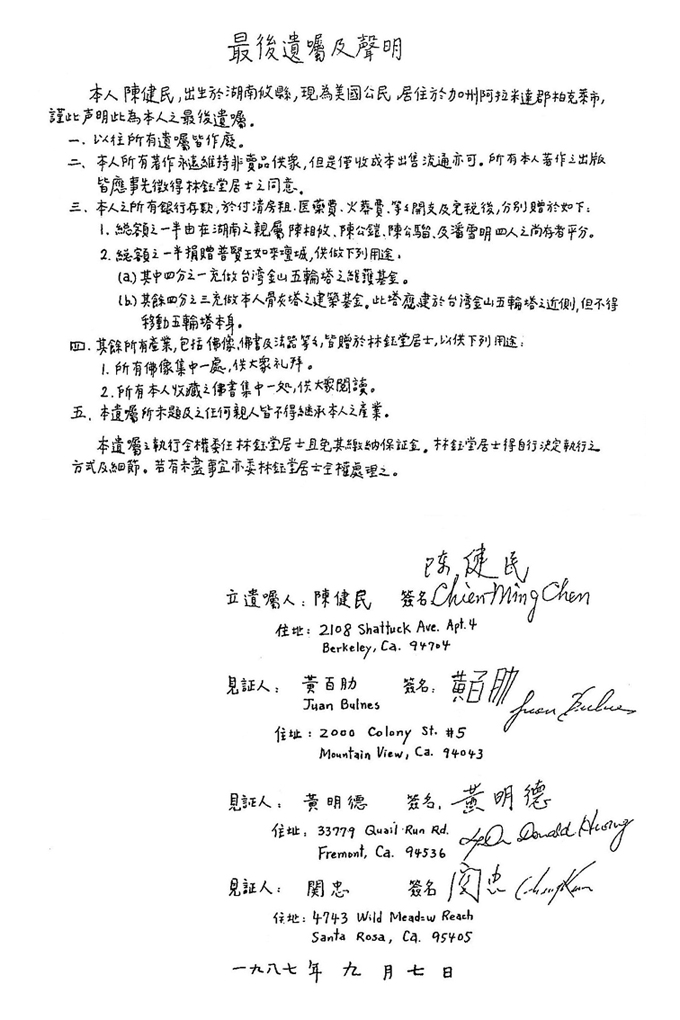 最後遺囑及聲明
本人陳健民,出生於湖南攸縣,現為美國公民,居住於加州阿拉米達郡柏克萊市,
謹此声明此為本人之最後遺囑。
一、以往所有遺囑皆作廢。
二、本人所有著作永遠維持非賣品供眾,但是僅收成本出售流通亦可。所有本人著作之出版
皆應事先徵得林鈺堂居士之同意。
三、本人之所有銀行存款,於付清房租、医藥費、火葬費、等等開支及完稅後,分別贈於如下:
1. 總額之一半由在湖南之親屬陳相攸、陳公鎧、陳公騮、及潘雪明四人之尚存者平分。
2. 總額之一半捐贈普賢王如來壇城,供做下列用途:
(a) 其中四分之一充做台湾金山五輪塔之維護基金。
(b) 其餘四分之三充做本人骨灰塔之建築基金。此塔應建於台湾金山五輪塔之近側,但不得
移動五輪塔本身。
四、其餘所有產業,包括佛像、佛書及法器等等,皆贈於林鈺堂居士,以供下列用途:
1. 所有佛像集中一處,供大家礼拜。
2. 所有本人收藏之佛書集中一処,供大家閱讀。
五、本遺囑所未題及之任何親人皆不得継承本人之產業。
本遺囑之執行全權委任林鈺堂居士且免其繳納保証金。林鈺堂居士得自行決定執行之
方式及細節。若有未盡事宜亦委林鈺堂居士全權處理之。
陳健民
立遺囑人:陳健民 簽名 Chien Ming Chen
住地:2108 Shattuck Ave. Apt.4
Berkeley, Ca. 94704
見証人: 黃百肋 簽名: 黃百肋
Juan Bulnes Juan Bulnes
住址:2000 Colony St. #5
Mountain View, Ca. 94043
見証人: 黃明德 簽名, 黃明德
住址: 33779 Quail Run Rd. Donald Hwang
Fremont, Ca. 94536
見証人: 関忠 簽名 関忠
住地:4743 Wild Meadow Reach
Santa Rosa, Ca. 95405
一九八七年 九月七日